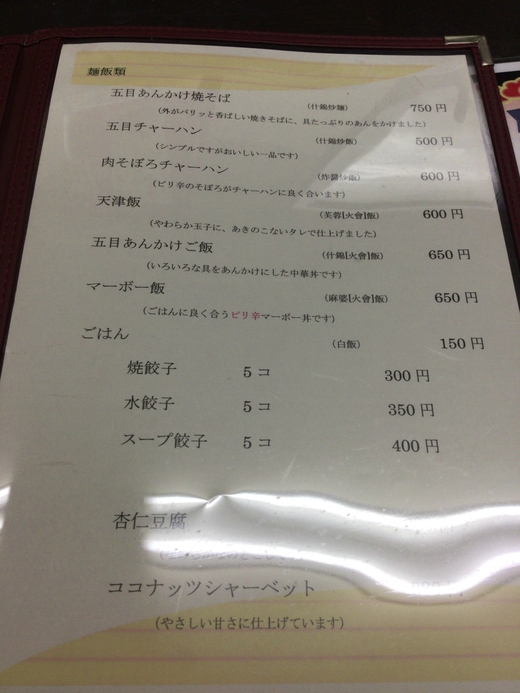 麺飯類
五目あんかけ焼そば (什錦炒麺) 750 円
(外がパリッと香ばしい焼きそばに、具たっぷりのあんをかけました)
五目チャーハン (什錦炒飯) 500 円
(シンプルですがおいしい一品です)
肉そぼろチャーハン (炸醤炒飯) 600 円
(ピリ辛のそぼろがチャーハンに良く合います)
天津飯 (芙蓉[火會]飯) 600 円
(やわらか玉子に、あきのこないタレで仕上げました)
五目あんかけご飯 (什錦[火會]飯) 650 円
(いろいろな具をあんかけにした中華丼です)
マーボー飯 (麻婆[火會]飯) 650 円
(ごはんに良く合うピリ辛マーボー丼です)
ごはん (白飯) 150 円
焼餃子 5コ 300 円
水餃子 5コ 350 円
スープ餃子 5コ 400 円
杏仁豆腐
ココナッツシャーベット
(やさしい甘さに仕上げています)